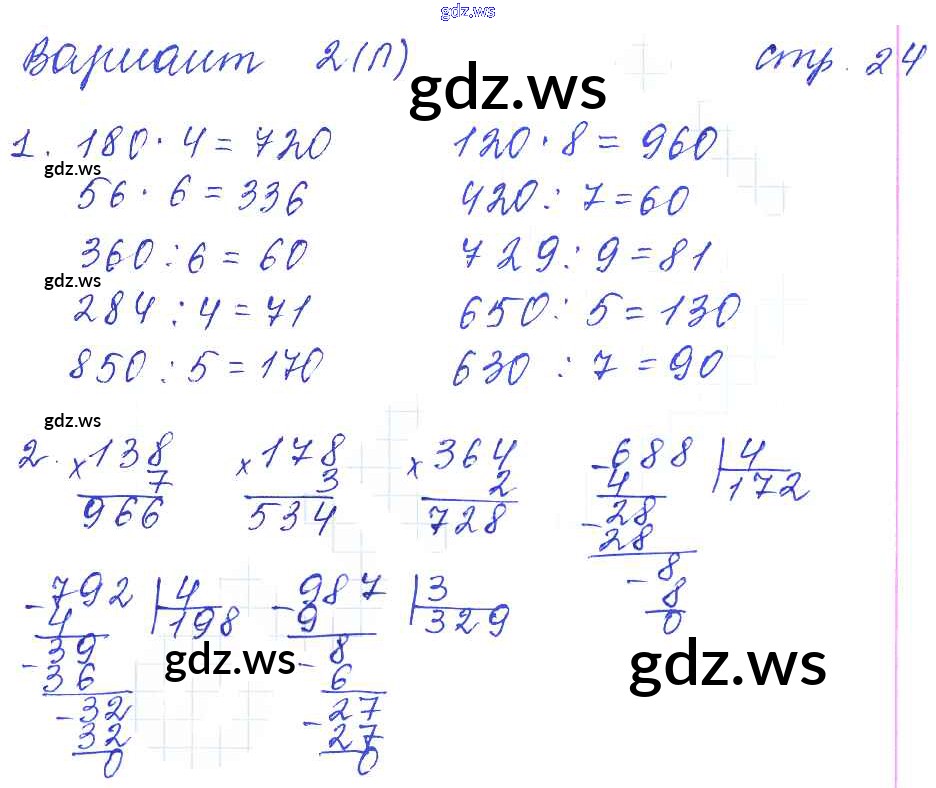 gdz.ws
Вариант 2(П) стр. 24
gdz.ws
1. 180 · 4 = 720 120 · 8 = 960
gdz.ws
56 · 6 = 336 420 : 7 = 60
360 : 6 = 60 729 : 9 = 81
gdz.ws
284 : 4 = 71 650 : 5 = 130
850 : 5 = 170 630 : 7 = 90
gdz.ws
2. × 138 × 178 × 364 - 688 | 4
7 3 2 4 172
966 534 728 - 28
28
- 8
8
0
- 792 | 4 - 987 | 3
4 198 9 329
- 39 - 8
36 6
- 32 - 27
32 27
0 0
gdz.ws gdz.ws